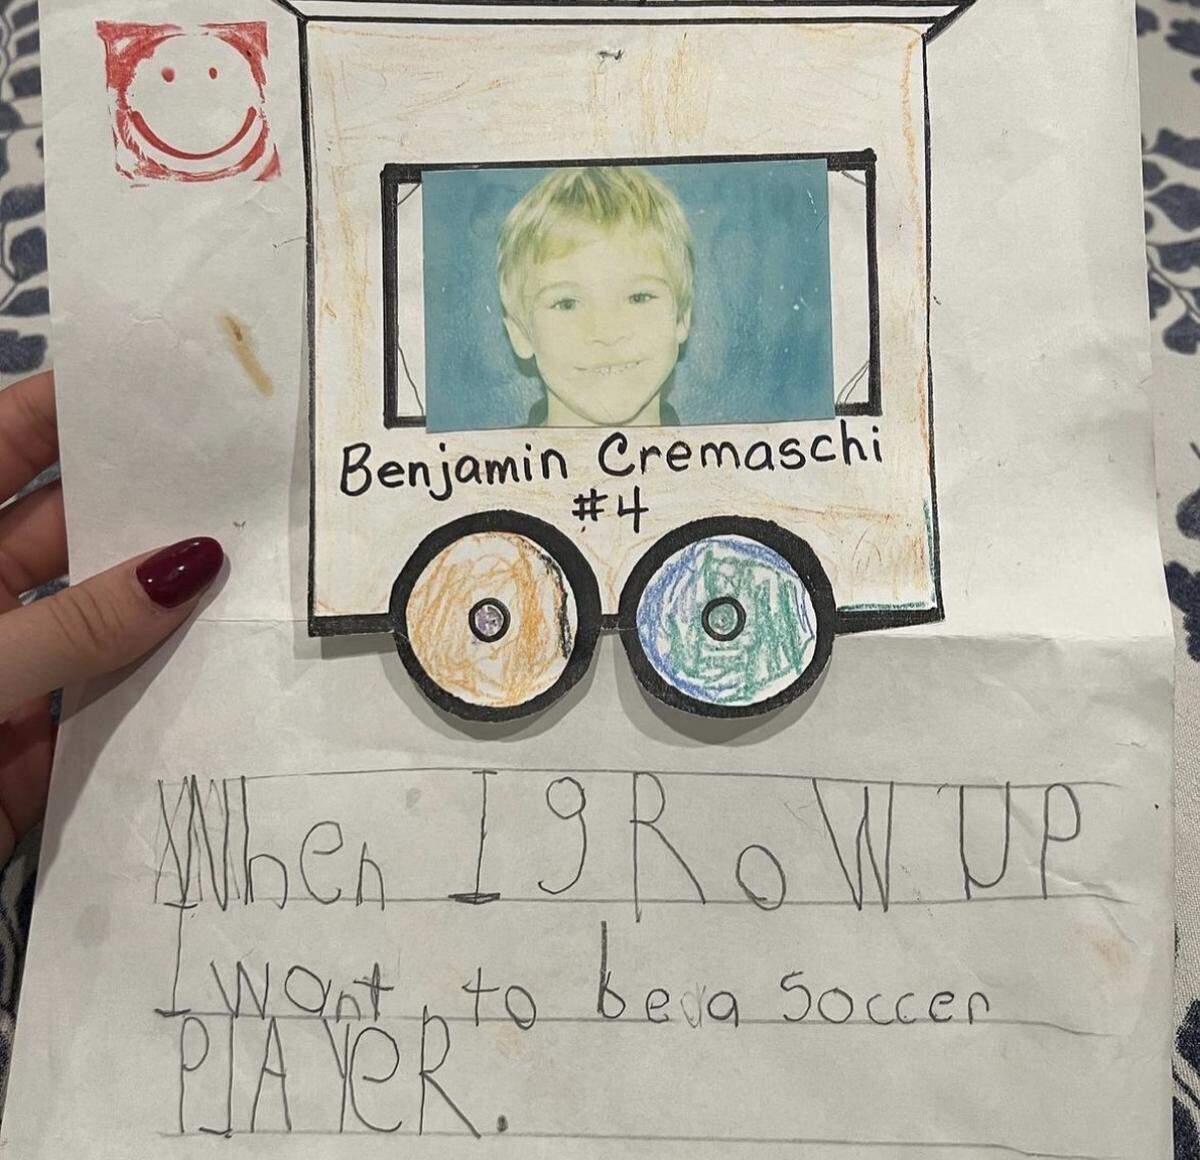 Benjamin Cremaschi
#4
When I gRoW UP
I want to be a Soccer
PlAYeR.